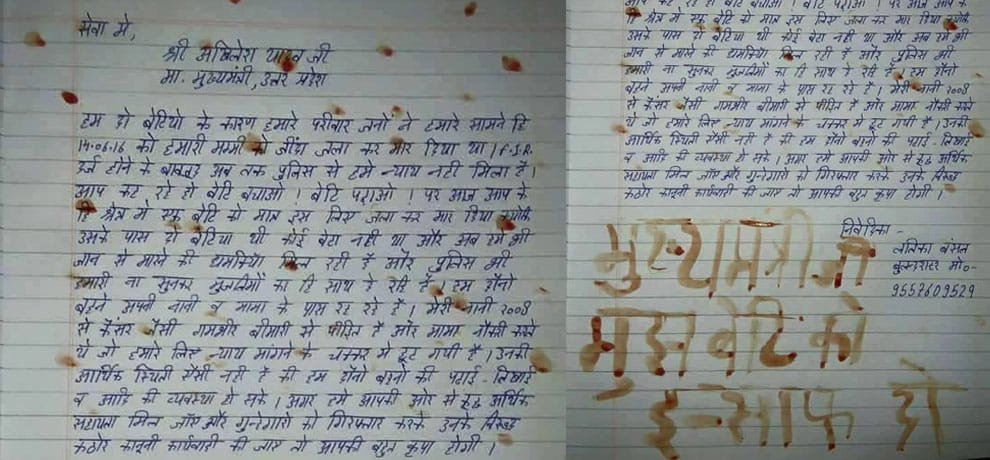 सेवा में,
श्री अखिलेश यादव जी
मा. मुख्यमंत्री, उत्तर प्रदेश
हम दो बेटियो के कारण हमारे परीवार जनो ने हमारे सामने हि
14-06-16 को हमारी मम्मी को जींदा जला कर मार दिया था। F.I.R.
दर्ज होने के बावजूद अब तक पुलिस से हमे न्याय नही मिला है।
आप कह रहे हो बेटि बचाओ। बेटि पढाओ। पर आज आप के
हि श्रेत्र मे एक बेटि को मात्र इस लिए जला कर मार दिया क्योकि
उसके पास दो बेटिया थी कोई बेटा नही था और अब हमे भी
जान से मारने की धमकिया मिल रही है और पुलिस भी
हमारी ना सुनकर मुलजिमों का हि साथ दे रहि है। हम दोनो
बहने अपनी नानी व मामा के पास रह रहे है। मेरी नानी 2008
से कैंसर जैसी गमभीर बीमारी से पीड़ित है और मामा नौकरी करते
थे जो हमारे लिए न्याय मांगने के चक्कर मे छूट गयी है। उनकी
आर्थिक स्थिती ऐसी नही है की हम दोनो बहनो की पढाई-लिखाई
व आदि की व्यवस्था हो सके। अगर हमे आपकी ओर से कुछ आर्थिक
सहायता मिल जाए और गुनेहगारो को गिरफ्तार करके उनके विरूद्ध
कठोर कानूनी कार्यवाही की जाए तो आपकी बहुत कृपा होगी।
आप कह रहे हो बेटि बचाओ। बेटि पढाओ। पर आज आप के
हि श्रेत्र मे एक बेटि को मात्र इस लिए जला कर मार दिया क्योकि
उसके पास दो बेटिया थी कोई बेटा नही था और अब हमे भी
जान से मारने की धमकिया मिल रही है और पुलिस भी
हमारी ना सुनकर मुलजिमों का हि साथ दे रहि है। हम दोनो
बहने अपनी नानी व मामा के पास रह रहे है। मेरी नानी 2008
से कैंसर जैसी गमभीर बीमारी से पीड़ित है और मामा नौकरी करते
थे जो हमारे लिए न्याय मांगने के चक्कर मे छूट गयी है। उनकी
आर्थिक स्थिती ऐसी नही है की हम दोनो बहनो की पढाई-लिखाई
व आदि की व्यवस्था हो सके। अगर हमे आपकी ओर से कुछ आर्थिक
सहायता मिल जाए और गुनेहगारो को गिरफ्तार करके उनके विरूद्ध
कठोर कानूनी कार्यवाही की जाए तो आपकी बहुत कृपा होगी।
निवेदिका -
लतिका बंसल
बुलन्दशहर मो०-
9557609529
मुख्यमंत्री जी
मुझ बेटि को
इन्साफ दो